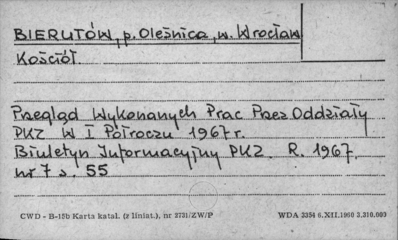 BIERUTÓW, p. Oleśnica, w. Wrocław
Kościół.
Przegląd Wykonanych Prac Przez Oddziały
PKZ W I Półroczu 1967 r.
Biuletyn Informacyjny PKZ. R. 1967.
nr 7 s. 55
CWD - B-15b Karta katal. (z liniat.), nr 3731/ZW/P WDA 3354 6.XII.1960 3.310.000